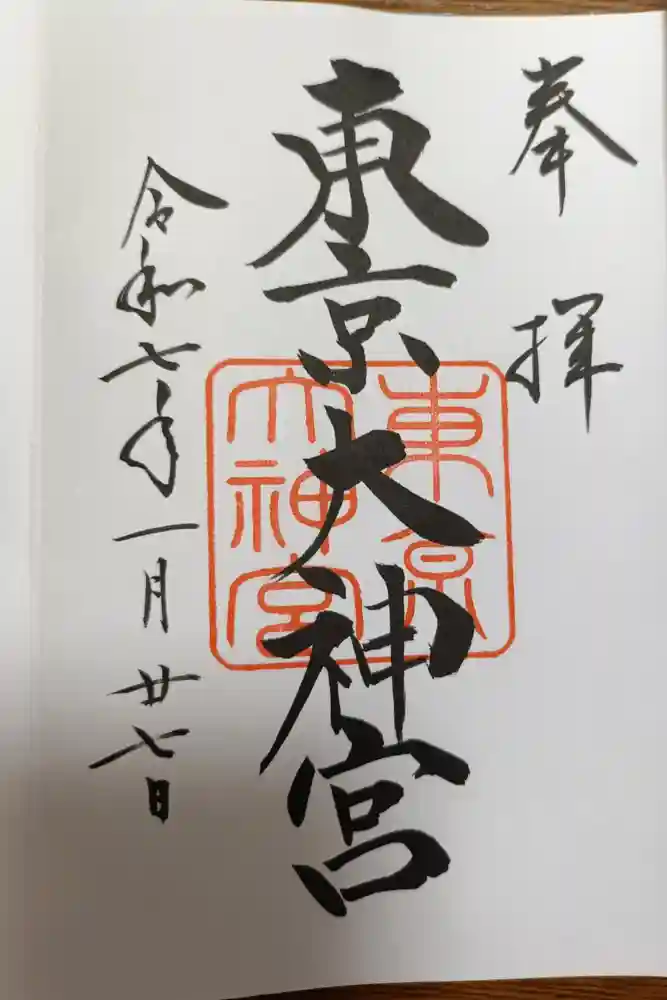 奉拝
東京大神宮
東京大神宮
令和七年一月廿七日